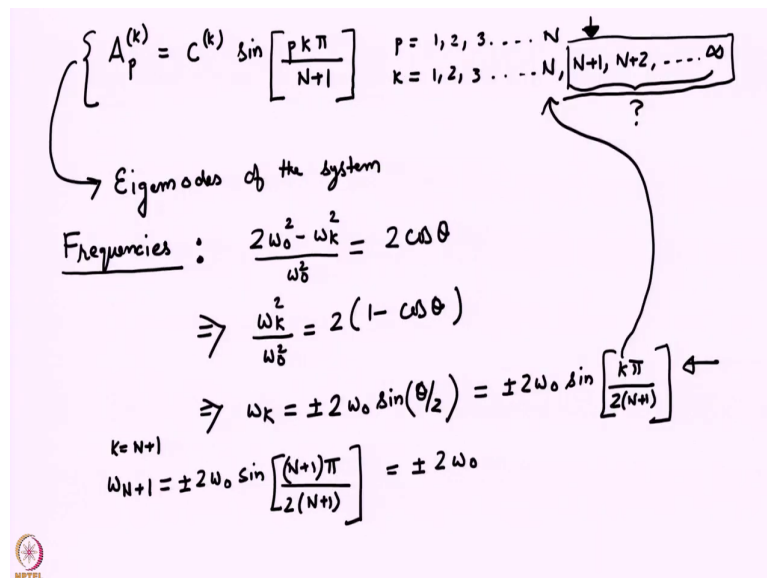 A_p^(k) = C^(k) sin [pkπ / N+1]   p = 1, 2, 3 .... N
k = 1, 2, 3 .... N, N+1, N+2, .... ∞
?
→ Eigemodes of the system
Frequencies : (2ω₀² - ω_k²) / ω₀² = 2 cos θ
⇒ ω_k² / ω₀² = 2(1 - cos θ)
⇒ ω_k = ± 2 ω₀ sin(θ/2) = ± 2ω₀ sin [kπ / 2(N+1)] ←
k = N+1
ω_N+1 = ± 2ω₀ sin [(N+1)π / 2(N+1)] = ± 2ω₀
NPTEL